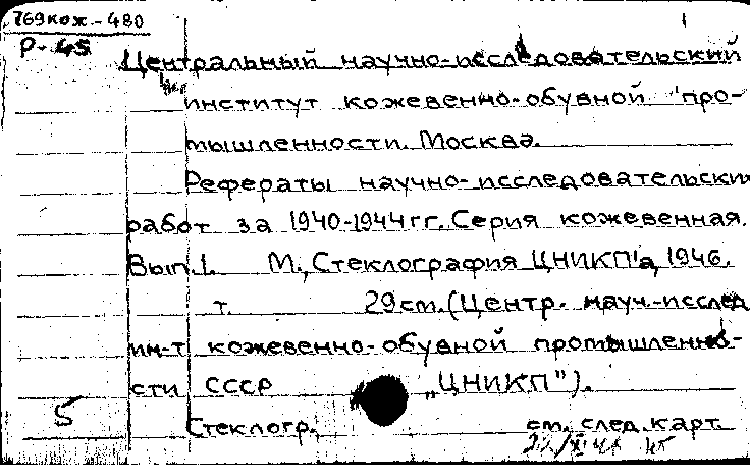 769кож.-480
Р-45
Центральный научно-исследовательский
институт кожевенно-обувной про-
мышленности. Москва.
Рефераты научно-исследовательских
работ за 1940-1944 гг. Серия кожевенная.
Вып. 1. М., Стеклография ЦНИКП'а, 1946.
т. 29 см. (Центр. науч.-исслед
ин-т кожевенно-обувной промышленно-
сти СССР „ЦНИКП").
5
Стеклогр. см. след. карт.